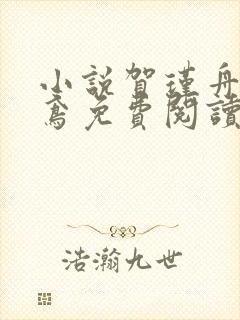 小説賀瑾舟
鳶免費閱讀
浩瀚九世